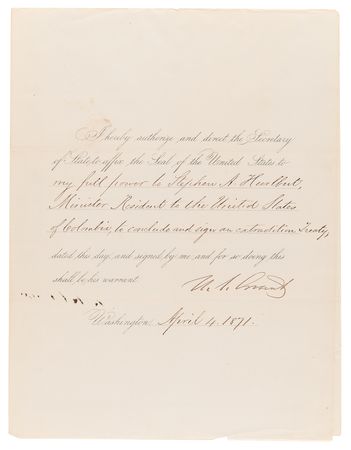 I hereby authorize and direct the Secretary
of State to affix the Seal of the United States to
my full power to Stephen A. Hurlbut,
Minister Resident to the United States
of Colombia, to conclude and sign an extradition Treaty,
dated this day, and signed by me, and for so doing this
shall be his warrant.
U. S. Grant
Washington, April 4, 1871.